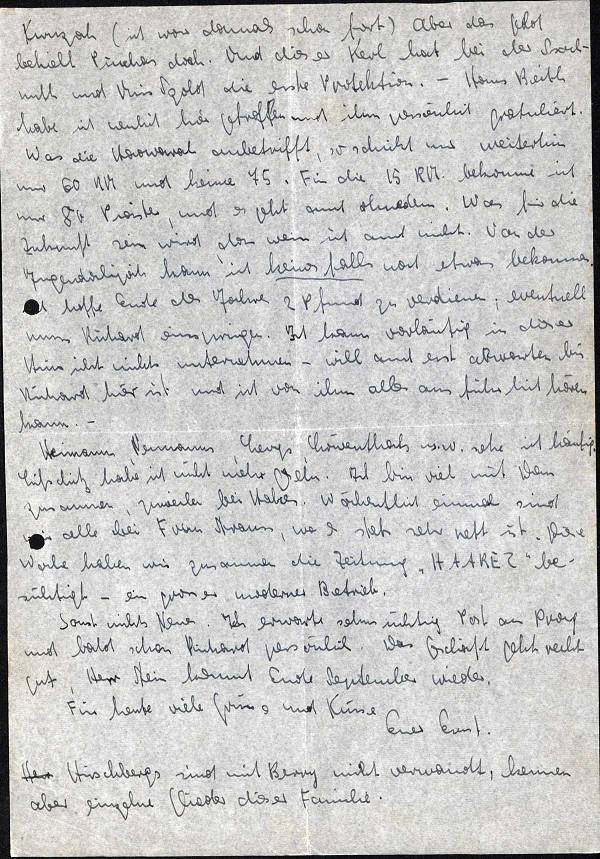 (ich war damals schon fort) Aber das
behielt Pinchas doch. Und dieser Kerl hat bei der
und die erste Protektion. – Hans
habe ich neulich hier getroffen und ihm persönlich gratuliert.
Was die betrifft, so schickt mir weiterhin
nur 60 RM und keine 75. Für die 15 RM. bekomme ich
nur 84 Piaster, und es geht auch ohnedem. Was für die
Zukunft sein wird, das weiss ich auch nicht. Von der
kann ich keinesfalls noch etwas bekommen.
Ich hoffe Ende des Jahres 2 Pfund zu verdienen, eventuell
muss Richard einspringen. Ich kann vorläufig in dieser
Hinsicht nichts unternehmen – will auch erst abwarten bis
Richard hier ist und ich von ihm alles ausführlich hören
kann. –
u.s.w. sehe ich häufig.
habe ich nicht mehr gesehn. Ich bin viel mit
zusammen, zuweilen bei. Wöchentlich einmal sind
wir alle bei Frau Strauss, wo es stets sehr nett ist. Diese
Woche haben wir zusammen die Zeitung „HAAREZ“ be-
sichtigt – ein grosser moderner Betrieb.
Sonst nichts Neues. Ich erwarte sehnsüchtig Post aus Prag
und bald schon Richard persönlich. Das Geschäft geht recht
gut, Herr Stein kommt Ende September wieder.
Für heute viele Grüsse und Küsse
Euer Ernst.
Hirschbergs sind mit Berry nicht verwandt, kennen
aber einzelne Glieder dieser Familie.